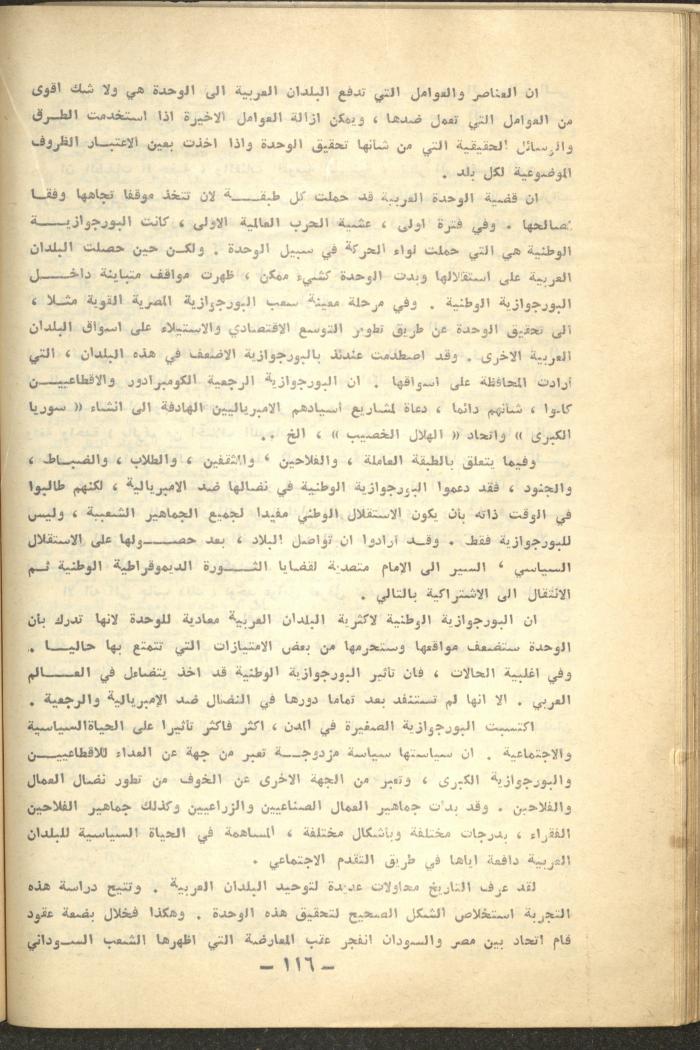 ان العناصر والعوامل التي تدفع البلدان العربية الى الوحدة هي ولا شك اقوى
من العوامل التي تعمل ضدها ، ويمكن ازالة العوامل الاخيرة اذا استخدمت الطـرق
والوسائل الحقيقية التي من شانها تحقيق الوحدة واذا اخذت بعين الاعتبـار الظروف
الموضوعية لكل بلد .
ان قضية الوحدة العربية قد حملت كل طبقـــة لان تتخذ موقفا تجاهها وفقـا
لمصالحها . وفي فترة اولى ، عشية الحرب العالمية الاولى ، كانت البورجوازيـــة
الوطنية هي التي حملت لواء الحركة في سبيل الوحدة . ولكـن حين حصلت البلدان
العربية على استقلالها وبدت الوحدة كشيء ممكن ، ظهرت مواقف متباينة داخـــل
البورجوازية الوطنية . وفي مرحلة معينة سعت البورجوازية المصرية القوية مثـلا ،
الى تحقيق الوحدة عن طريق تطوير التوسع الاقتصادي والاستيلاء على اسواق البلدان
العربية الاخرى . وقد اصطدمت عندئذ بالبورجوازية الاضعف في هذه البلدان ، التي
أرادت المحافظة على اسواقها . ان البورجوازية الرجعية الكومبرادور والاقطاعييــن
كانوا ، شانهم دائما ، دعاة لمشاريع أسيادهم الامبرياليين الهادفة الى انشاء « سوريا
الكبرى » واتحاد « الهلال الخصيب » ، الخ ..
وفيما يتعلق بالطبقة العاملة ، والفلاحين ، والمثقفين ، والطلاب ، والضبـاط ،
والجنود ، فقد دعموا البورجوازية الوطنية في نضالها ضد الامبريالية ، لكنهم طالبوا
في الوقت ذاته بأن يكون الاستقلال الوطني مفيدا لجميع الجماهير الشعبية ، وليس
للبورجوازية فقط . وقـد أرادوا ان تواصل البلاد ، بعد حصــولها على الاستقلال
السياسي ، السير الى الامام متصدية لقضايا الثـــورة الديموقراطية الوطنية ثـم
الانتقال الى الاشتراكية بالتالي .
ان البورجوازية الوطنية لاكثرية البلدان العربية معادية للوحدة لانها تدرك بأن
الوحدة ستضعف مواقعها وستحرمها من بعض الامتيازات التي تتمتع بها حاليـا .
وفي اغلبية الحالات ، فان تأثير البورجوازية الوطنية قد اخذ يتضاءل في العـــالم
العربي . الا انها لم تستنفد بعد تماما دورها في النضال ضد الامبريالية والرجعية .
اكتسبت البورجوازية الصغيرة في المدن ، اكثر فاكثر تأثيرا على الحياة السياسية
والاجتماعية . ان سياستها سياسة مزدوجـــة تعبر من جهة عن العداء للاقطاعييــن
والبورجوازية الكبرى ، وتعبر من الجهة الاخرى عن الخوف من تطور نضال العمال
والفلاحين . وقد بدأت جماهير العمال الصناعيين والزراعيين وكذلك جماهير الفلاحين
الفقراء ، بدرجات مختلفة وبأشكال مختلفة ، المساهمة في الحياة السياسية للبلدان
العربية دافعة اياها في طريق التقدم الاجتماعي .
لقد عرف التاريخ محاولات عديدة لتوحيد البلدان العربية . وتتيح دراسة هذه
التجربة استخلاص الشكل الصحيح لتحقيق هذه الوحدة . وهكذا فخلال بضعة عقود
قام اتحاد بين مصر والسودان انفجر عقب المعارضة التي اظهرها الشعب السـوداني
– ١١٦ –